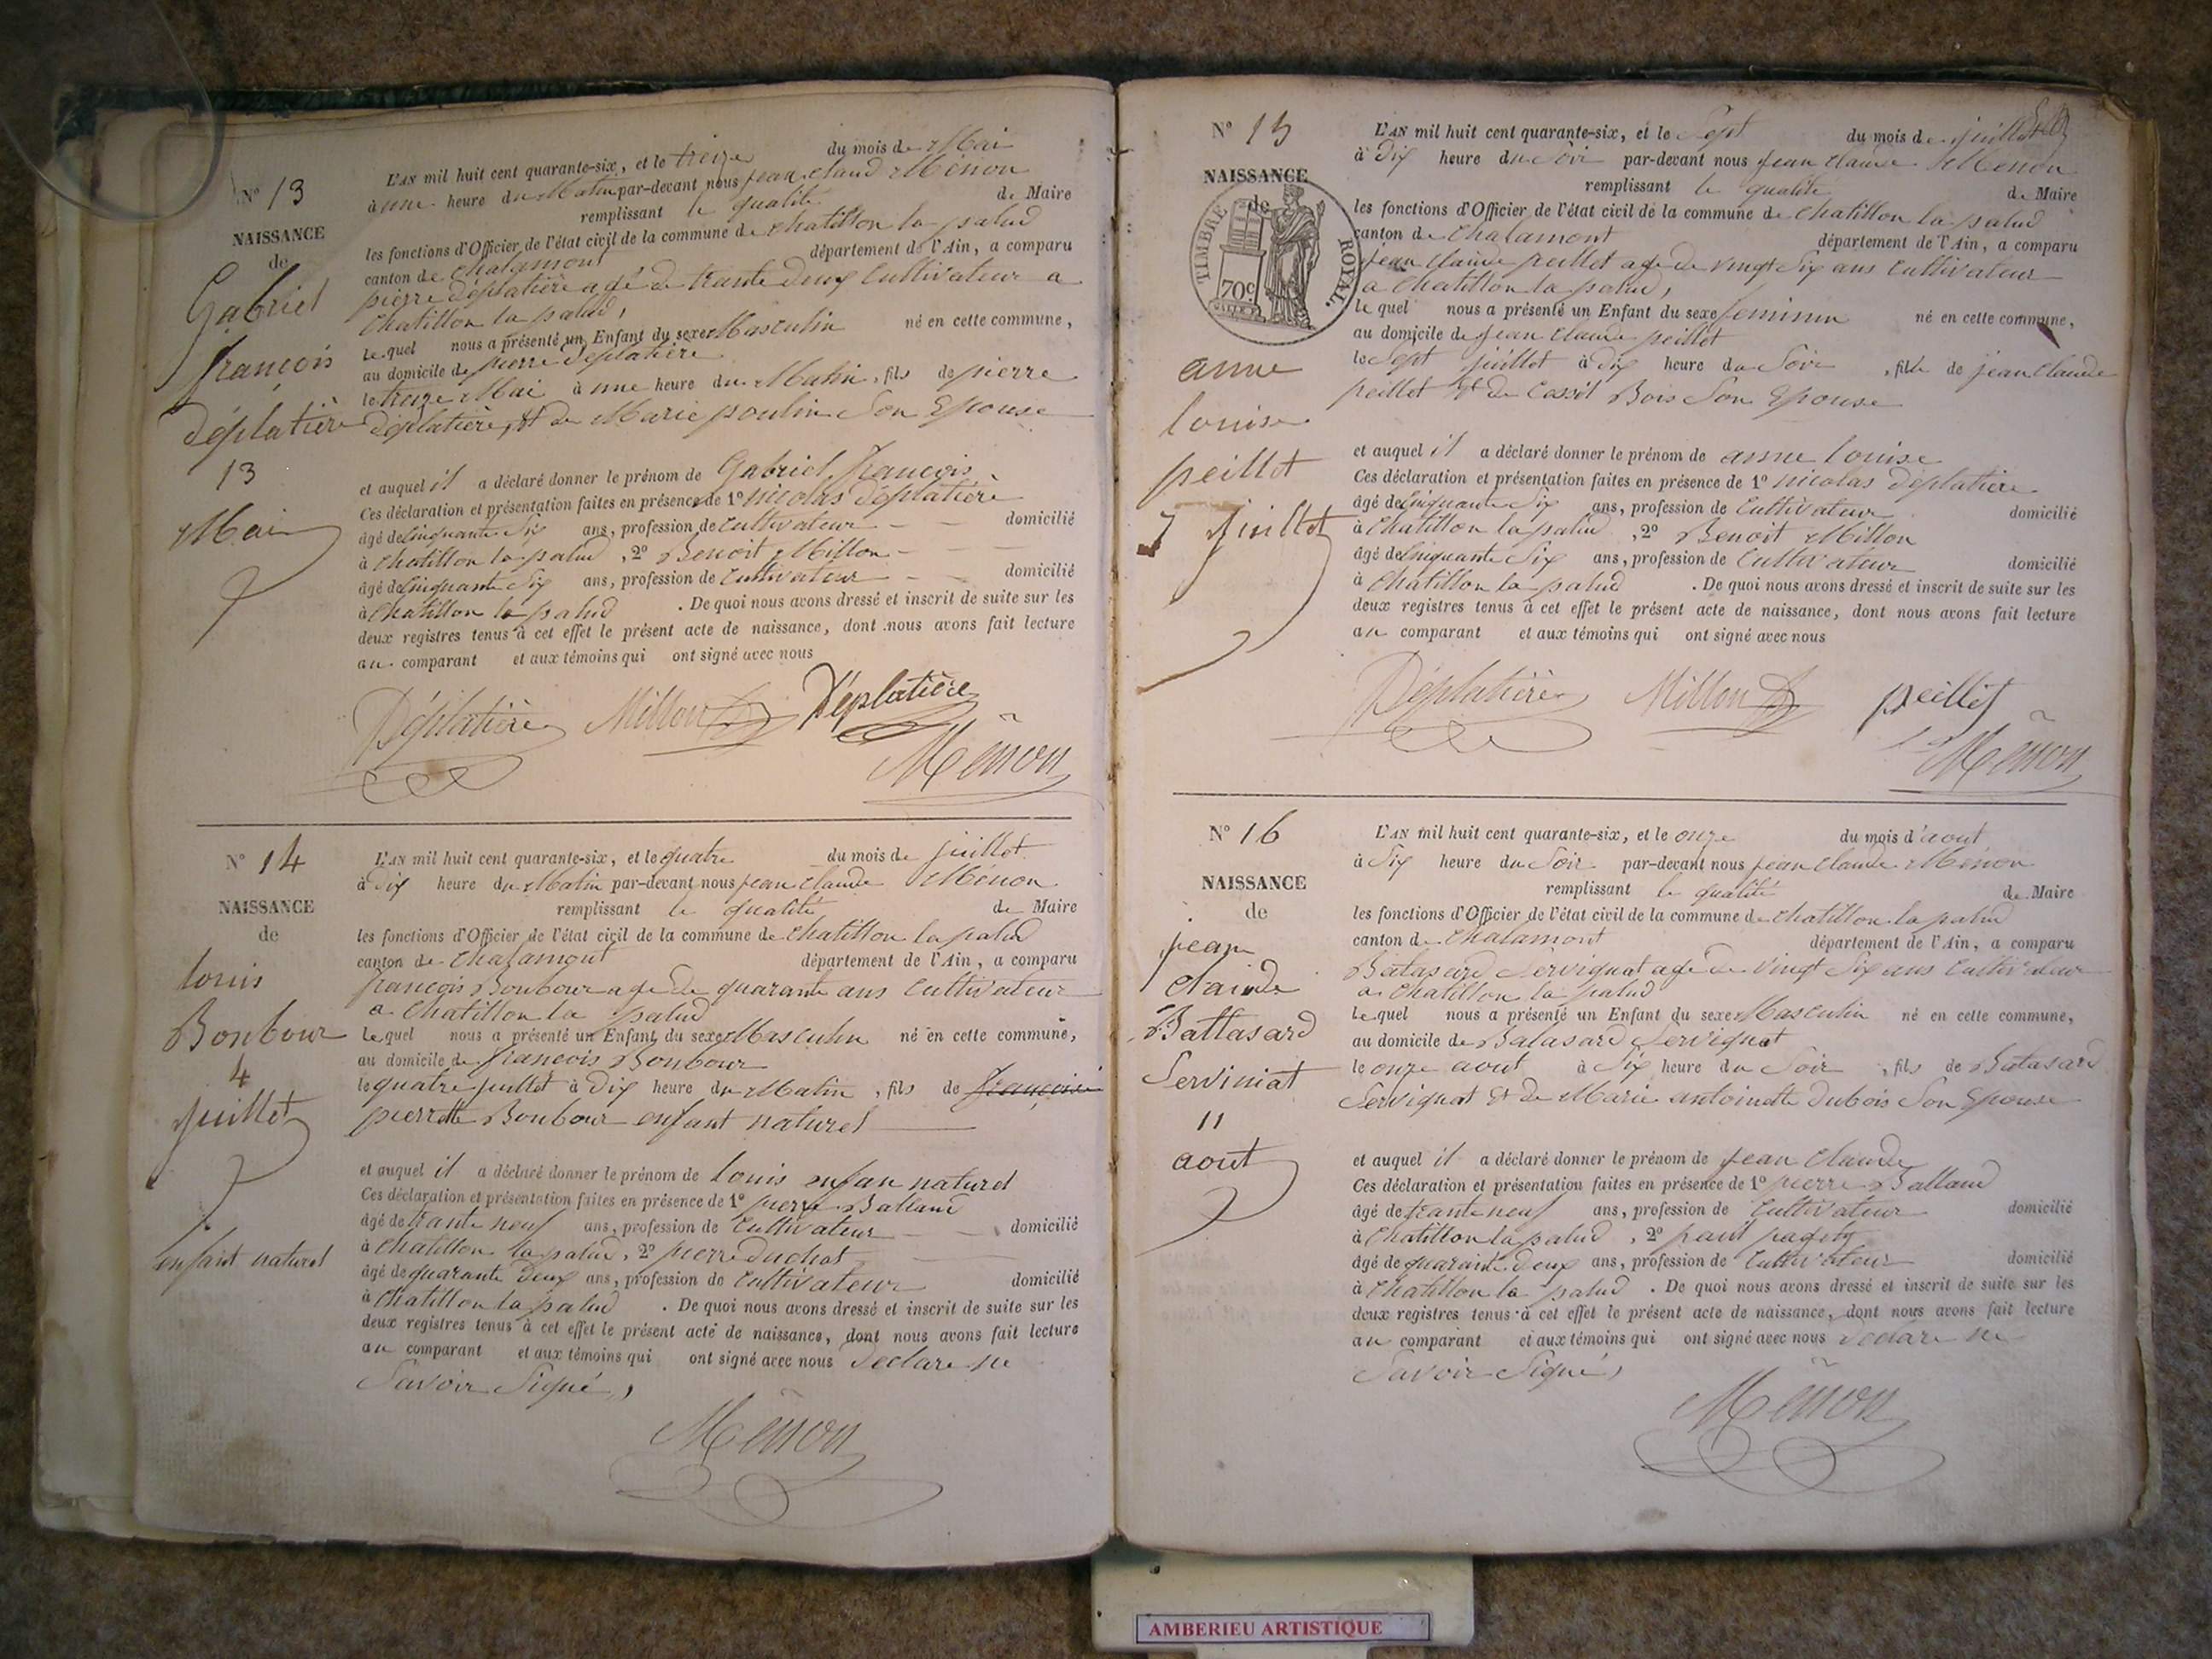 N° 13
NAISSANCE
de
Gabriel
françois
Déplatière
13
Mai
L'AN mil huit cent quarante-six, et le treize du mois de Mai
à une heure du Matin par-devant nous jean claud Menon
remplissant la qualité de Maire
les fonctions d'Officier de l'état civil de la commune de chatillon la palud
canton de chalamont département de l'Ain, a comparu
pierre déplatière agé de trante deux Cultivateur a
Chatillon la palud,
Lequel nous a présenté un Enfant du sexe Masculin né en cette commune,
au domicile de pierre déplatière
le treize Mai à une heure du Matin, fils de pierre
déplatière, et de Marie poulin Son Epouse
et auquel il a déclaré donner le prénom de Gabriel françois
Ces déclaration et présentation faites en présence de 1° nicolas déplatière
âgé de Cinquante Six ans, profession de Cultivateur domicilié
à Chatillon la palud, 2° Benoit Millon
âgé de Cinquante Six ans, profession de Cultivateur domicilié
à Chatillon la palud. De quoi nous avons dressé et inscrit de suite sur les
deux registres tenus à cet effet le présent acte de naissance, dont nous avons fait lecture
au comparant et aux témoins qui ont signé avec nous
Déplatière Millon Déplatière
Menon
N° 14
NAISSANCE
de
louis
Bonbour
4
juillet
enfant naturel
L'AN mil huit cent quarante-six, et le quatre du mois de juillet
à Dix heure du Matin par-devant nous jean claude Menon
remplissant la qualité de Maire
les fonctions d'Officier de l'état civil de la commune de Chatillon la palud
canton de Chalamont département de l'Ain, a comparu
françois Bonbour agé de quarante ans Cultivateur
a Chatillon la palud
Lequel nous a présenté un Enfant du sexe Masculin né en cette commune,
au domicile de françois Bonbour
le quatre juillet à Dix heure du Matin, fils de
pierrette Bonbour enfant naturel
et auquel il a déclaré donner le prénom de louis enfan naturel
Ces déclaration et présentation faites en présence de 1° pierre Balland
âgé de trante neuf ans, profession de Cultivateur domicilié
à Chatillon la palud, 2° pierre duchat
âgé de quarante Deux ans, profession de Cultivateur domicilié
à Chatillon la palud. De quoi nous avons dressé et inscrit de suite sur les
deux registres tenus à cet effet le présent acte de naissance, dont nous avons fait lecture
au comparant et aux témoins qui ont signé avec nous Declare ne
Savoir Signé,
Menon
N° 15
NAISSANCE
de
TIMBRE ROYAL.
70c
anne
louise
peillot
7 juillet
L'AN mil huit cent quarante-six, et le Sept du mois de juillet
à Dix heure du Soir par-devant nous jean claude Menon
remplissant la qualité de Maire
les fonctions d'Officier de l'état civil de la commune de chatillon la palud
canton de Chalamont département de l'Ain, a comparu
jean claude peillot agé de vingt Six ans Cultivateur
a Chatillon la palud,
Le quel nous a présenté un Enfant du sexe feminin né en cette commune,
au domicile de jean claude peillot
le Sept juillet à Dix heure du Soir, fille de jean claude
peillot et de Bois Son Epouse
et auquel il a déclaré donner le prénom de anne louise
Ces déclaration et présentation faites en présence de 1° nicolas déplatière
âgé de Cinquante Six ans, profession de Cultivateur domicilié
à Chatillon la palud, 2° Benoit Millon
âgé de Cinquante Six ans, profession de Cultivateur domicilié
à Chatillon la palud. De quoi nous avons dressé et inscrit de suite sur les
deux registres tenus à cet effet le présent acte de naissance, dont nous avons fait lecture
au comparant et aux témoins qui ont signé avec nous
Déplatière Millon peillot
Menon
N° 16
NAISSANCE
de
jean
claude
Baltasard
Serviniat
11
aout
L'AN mil huit cent quarante-six, et le onze du mois d'aout
à Six heure du Soir par-devant nous jean claude Menon
remplissant la qualité de Maire
les fonctions d'Officier de l'état civil de la commune de chatillon la palud
canton de Chalamont département de l'Ain, a comparu
Batasard Servignat agé de vingt Six ans Cultivateur
a Chatillon la palud
Lequel nous a présenté un Enfant du sexe Masculin né en cette commune,
au domicile de Balasard Servignat
le onze aout à Six heure du Soir, fils de Batasard
Servignat et de Marie antoinette Dubois Son Epouse
et auquel il a déclaré donner le prénom de jean claude
Ces déclaration et présentation faites en présence de 1° pierre Balland
âgé de trante neuf ans, profession de Cultivateur domicilié
à Chatillon la palud, 2° paul
âgé de quarante deux ans, profession de Cultivateur domicilié
à Chatillon la palud. De quoi nous avons dressé et inscrit de suite sur les
deux registres tenus à cet effet le présent acte de naissance, dont nous avons fait lecture
au comparant et aux témoins qui ont signé avec nous Declare ne
Savoir Signé,
Menon
AMBERIEU ARTISTIQUE